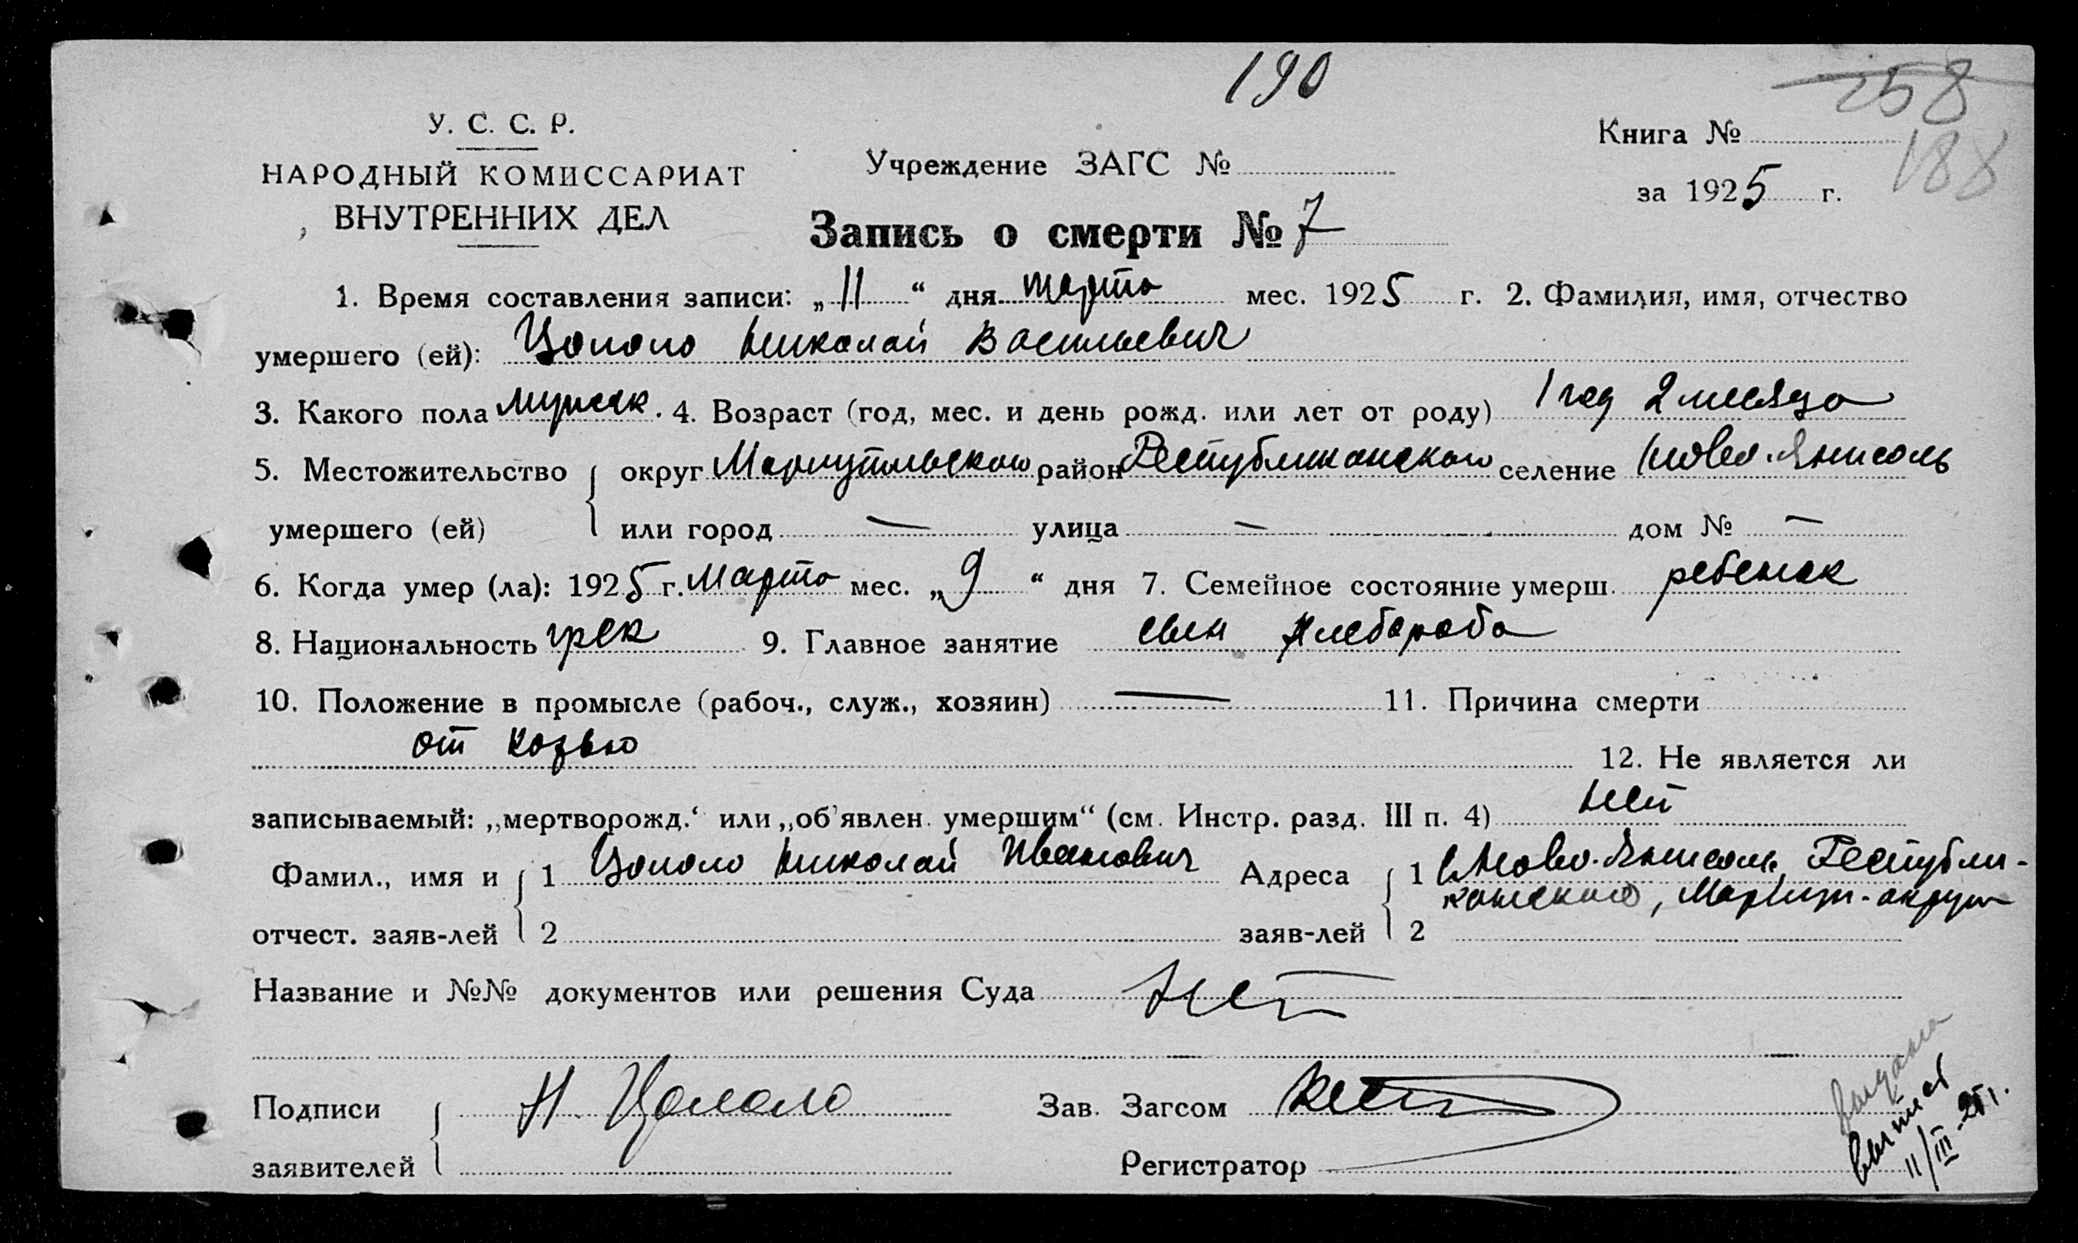 190
258
У. С. С. Р.
Книга №
188
НАРОДНЫЙ КОМИССАРИАТ
Учреждение ЗАГС №
ВНУТРЕННИХ ДЕЛ
за 1925 г.
Запись о смерти № 7
1. Время составления записи: „11“ дня марта мес. 1925 г. 2. Фамилия, имя, отчество
умершего (ей): Цололо Николай Васильевич
3. Какого пола мужск. 4. Возраст (год, мес. и день рожд. или лет от роду) 1 год 2 месяца
5. Местожительство округ Мариупольского район Республиканского селение Ново-Янисоль
умершего (ей) или город — улица — дом № —
6. Когда умер (ла): 1925 г. Марта мес. „9“ дня 7. Семейное состояние умерш. ребенок
8. Национальность грек 9. Главное занятие сын хлебороба
10. Положение в промысле (рабоч., служ., хозяин) — 11. Причина смерти
от 12. Не является ли
записываемый: „мертворожд.‘ или „об’явлен. умершим“ (см. Инстр. разд. III п. 4) нет
Фамил., имя и 1 Цололо Николай Иванович Адреса 1 с. Ново-Янисоль, Республи-
канского, Мариуп. округа
отчест. заяв-лей 2 заяв-лей 2
Название и №№ документов или решения Суда нет
Подписи Н. Цололо Зав. Загсом
заявителей Регистратор
Выдана
выпись
11/III-25 г.